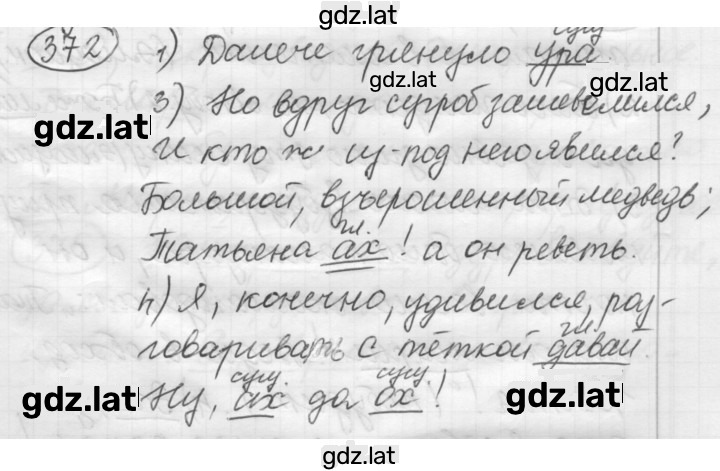 gdz.lat
372 1) Далече грянуло ура.
сущ
gdz.lat gdz.lat
3) Но вдруг сугроб зашевелился,
gdz.lat
И кто ж из-под него явился?
Большой, взъерошенный медведь;
гл.
Татьяна ах! а он реветь.
4) Я, конечно, удивился, раз-
говаривать с тёткой давай.
гл.
сущ. сущ.
gdz.lat Ну, ах да ох! gdz.lat
gdz.lat